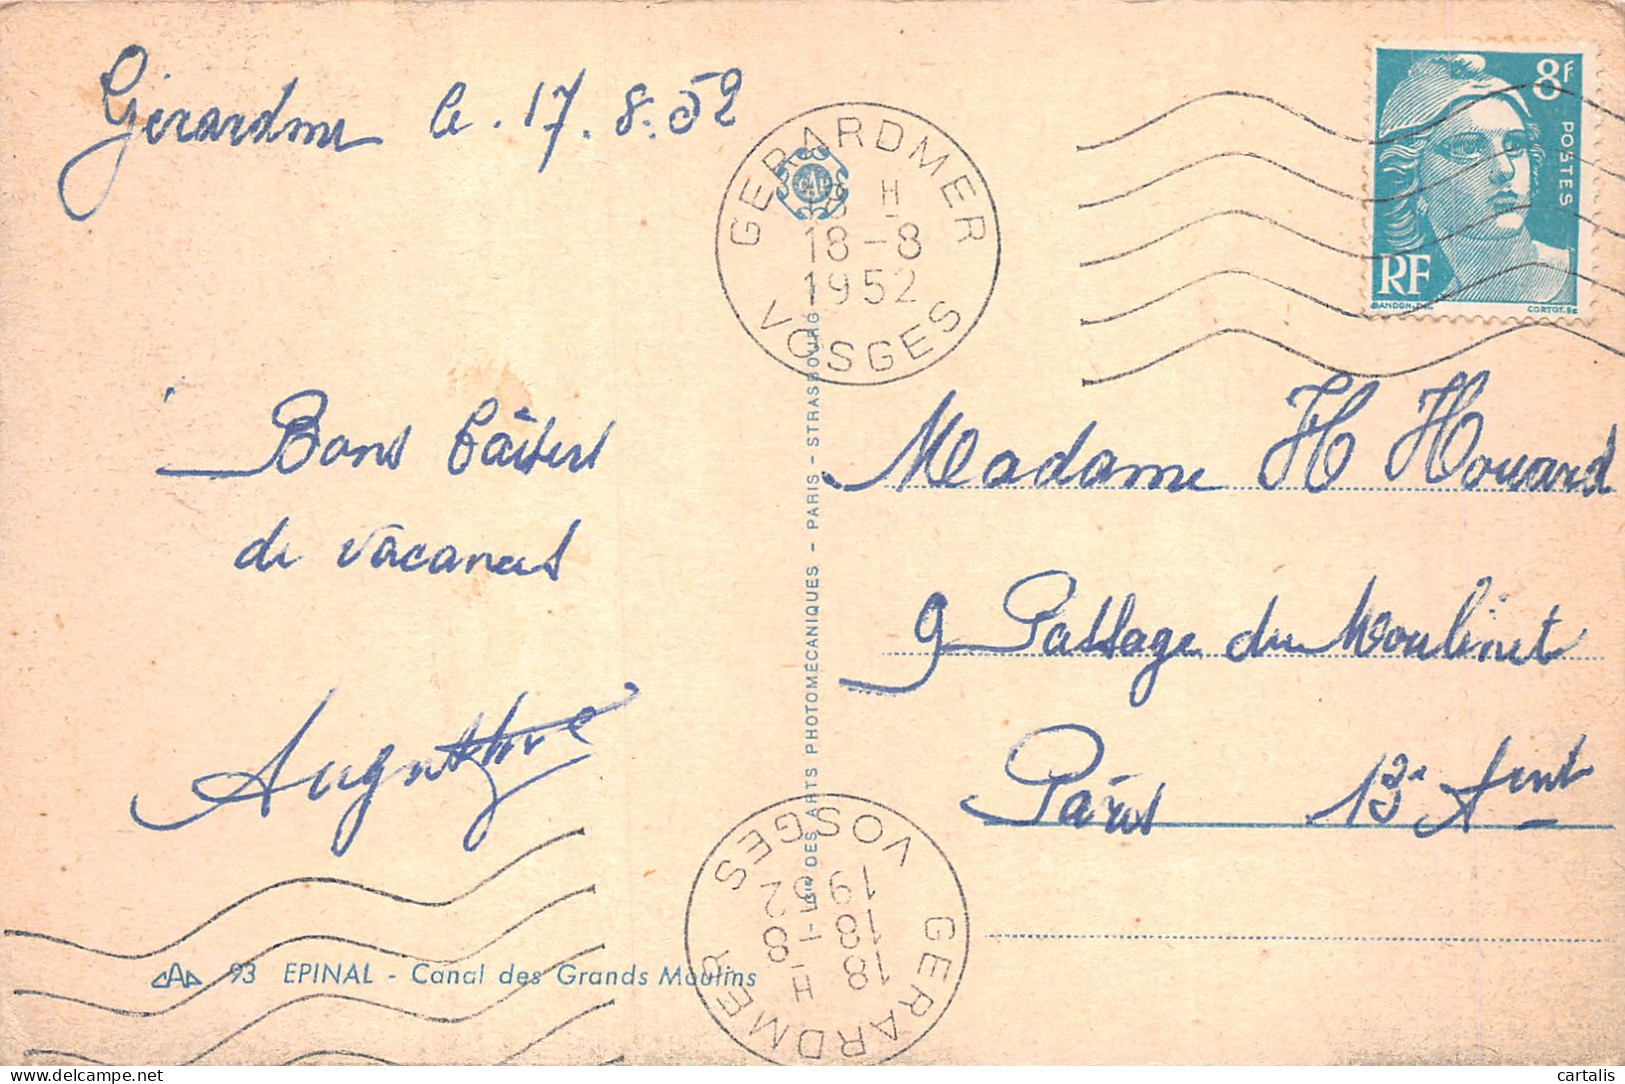 Gérardmer le . 17 . 8 . 52
Bons baisers
de vacances
Augustine
93 EPINAL - Canal des Grands Moulins
CAP
Cie DES ARTS PHOTOMÉCANIQUES - PARIS - STRASBOURG
GERARDMER
18 H
18-8
1952
VOSGES
8F
POSTES
RF
GANDON.DEL.
CORTOT.SC
Madame H Houard
9 Passage du Moulinet
Paris 13e Arrnt
GERARDMER
18 H
18-8
1952
VOSGES
cartalis